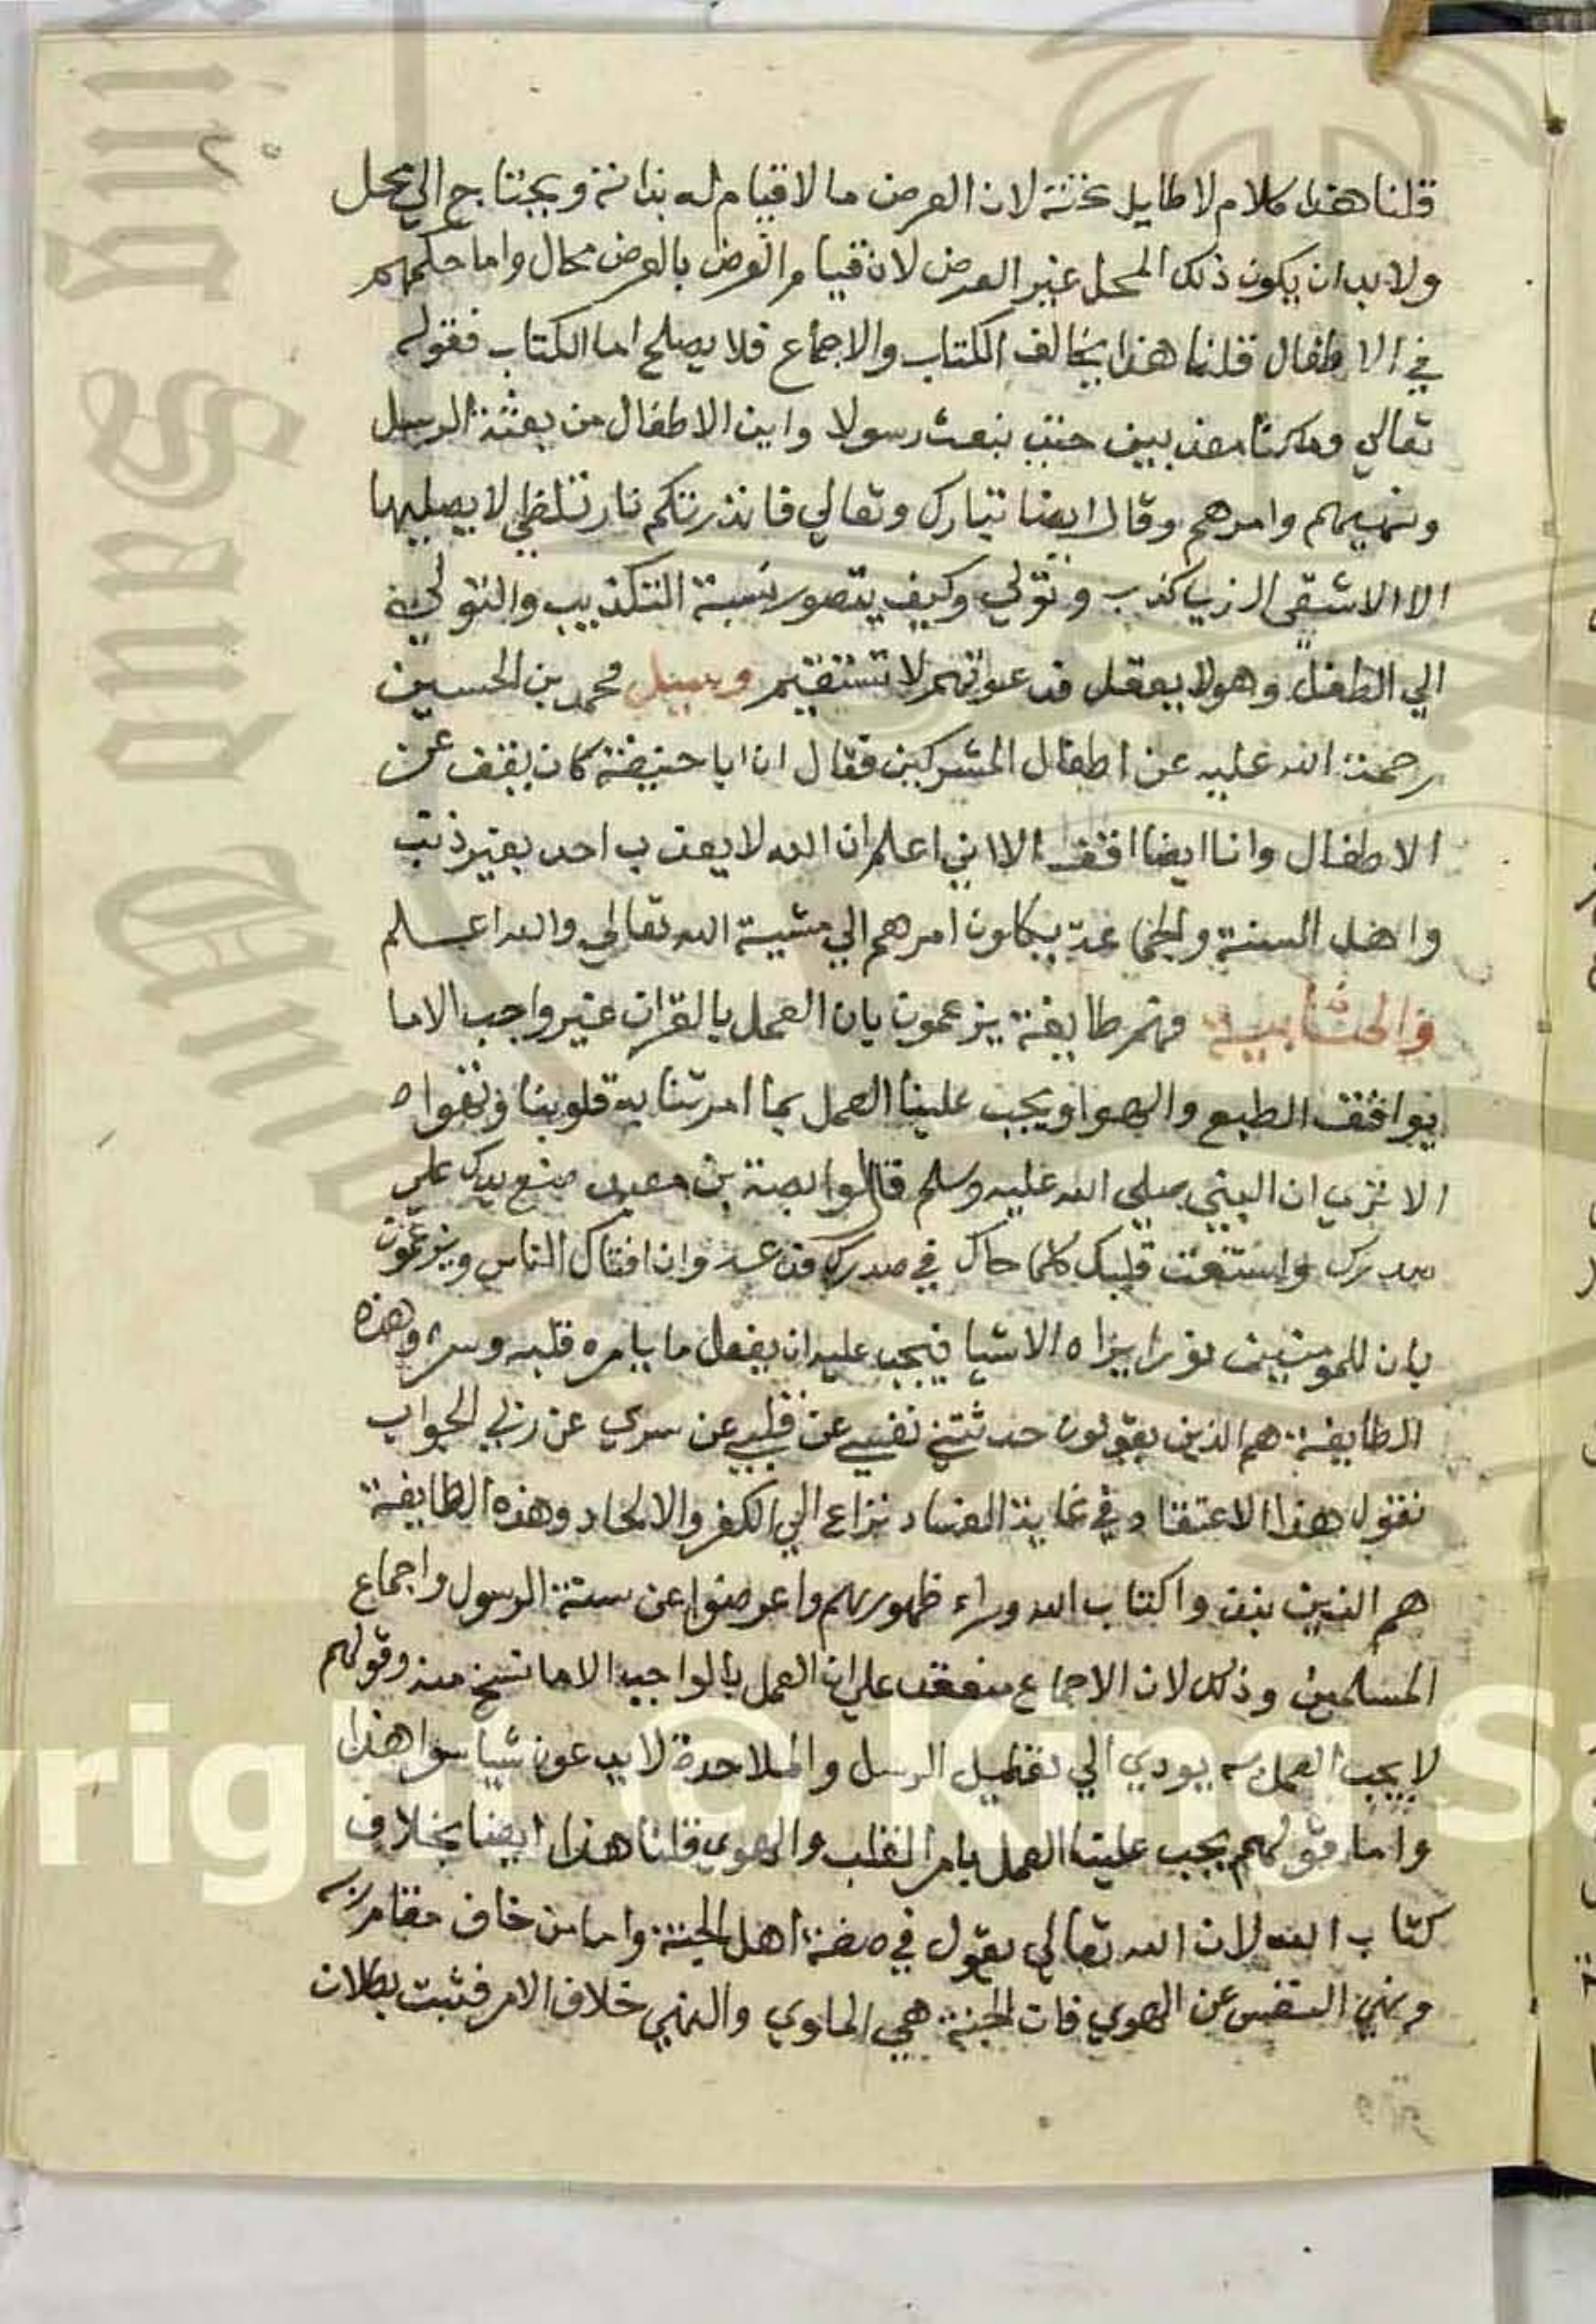 قلنا هذا كلام لا طايل تحته لان العرض ما لا قيام له بذاته ويحتاج الي محل
ولا بد ان يكون ذلك المحل غير العرض لان قيام العرض بالعرض محال واما حكمهم
في الاطفال قلنا هذا يخالف الكتاب والاجماع فلا يصلح اما الكتاب فقوله
تعالي وما كنا معذبين حتي نبعث رسولا واين الاطفال من بعثة الرسل
ونهيهم وامرهم وقال ايضا تبارك وتعالي فانذرتكم نارا تلظي لا يصليها
الا الاشقي الذي كذب وتولي وكيف يتصور نسبة التكذيب والتولي
الي الطفل وهو لا يعقل فدعواتهم لا تستقيم وسيل محمد بن الحسين
رحمة الله عليه عن اطفال المشركين فقال ان ابا حنيفة كان يقف عن
الاطفال وانا ايضا اقف الا اني اعلم ان الله لا يعذب احد بغير ذنب
واهل السنة والجماعة يكلون امرهم الي مشية الله تعالي والله اعلم
فهم طايفة يزعمون بان العمل بالقران غير واجب الا ما
يوافق الطبع والهوا ويجب علينا العمل بما امرتنا به قلوبنا وتهواه
الا تري ان النبي صلي الله عليه وسلم قال لوابصة بن معبد ضع يدك علي
صدرك واستفت قلبك كلما حاك في صدرك فدعه وان افتاك الناس ويزعمون
بان للمومنين نورا يراه الاشيا فيجب عليه ان يفعل ما يامره قلبه وسره وهذه
الطايفة هم الذين يقولون حدثتني نفسي عن قلبي عن سري عن ربي الجواب
نقول هذا الاعتقاد في غاية الفساد نزاع الي الكفر والالحاد وهذه الطايفة
هم الذين نبذوا كتاب الله وراء ظهورهم واعرضوا عن سنة الرسول واجماع
المسلمين وذلك لان الاجماع منعقد علي ان العمل بالواجب الا ما نسخ منه وقولهم
لا يجب العمل به يودي الي تعطيل الرسل والملاحدة لا يدعون شيا سوا هذا
واما قولهم يجب علينا العمل بامر القلب والهوي قلنا هذا ايضا بخلاف
كتاب الله لان الله تعالي يقول في صفة اهل الجنة واما من خاف مقام ربه
ونهي النفس عن الهوي فان الجنة هي الماوي والنهي خلاف الامر فثبت بطلان
King Saud University
1957
Copyright © King Sa